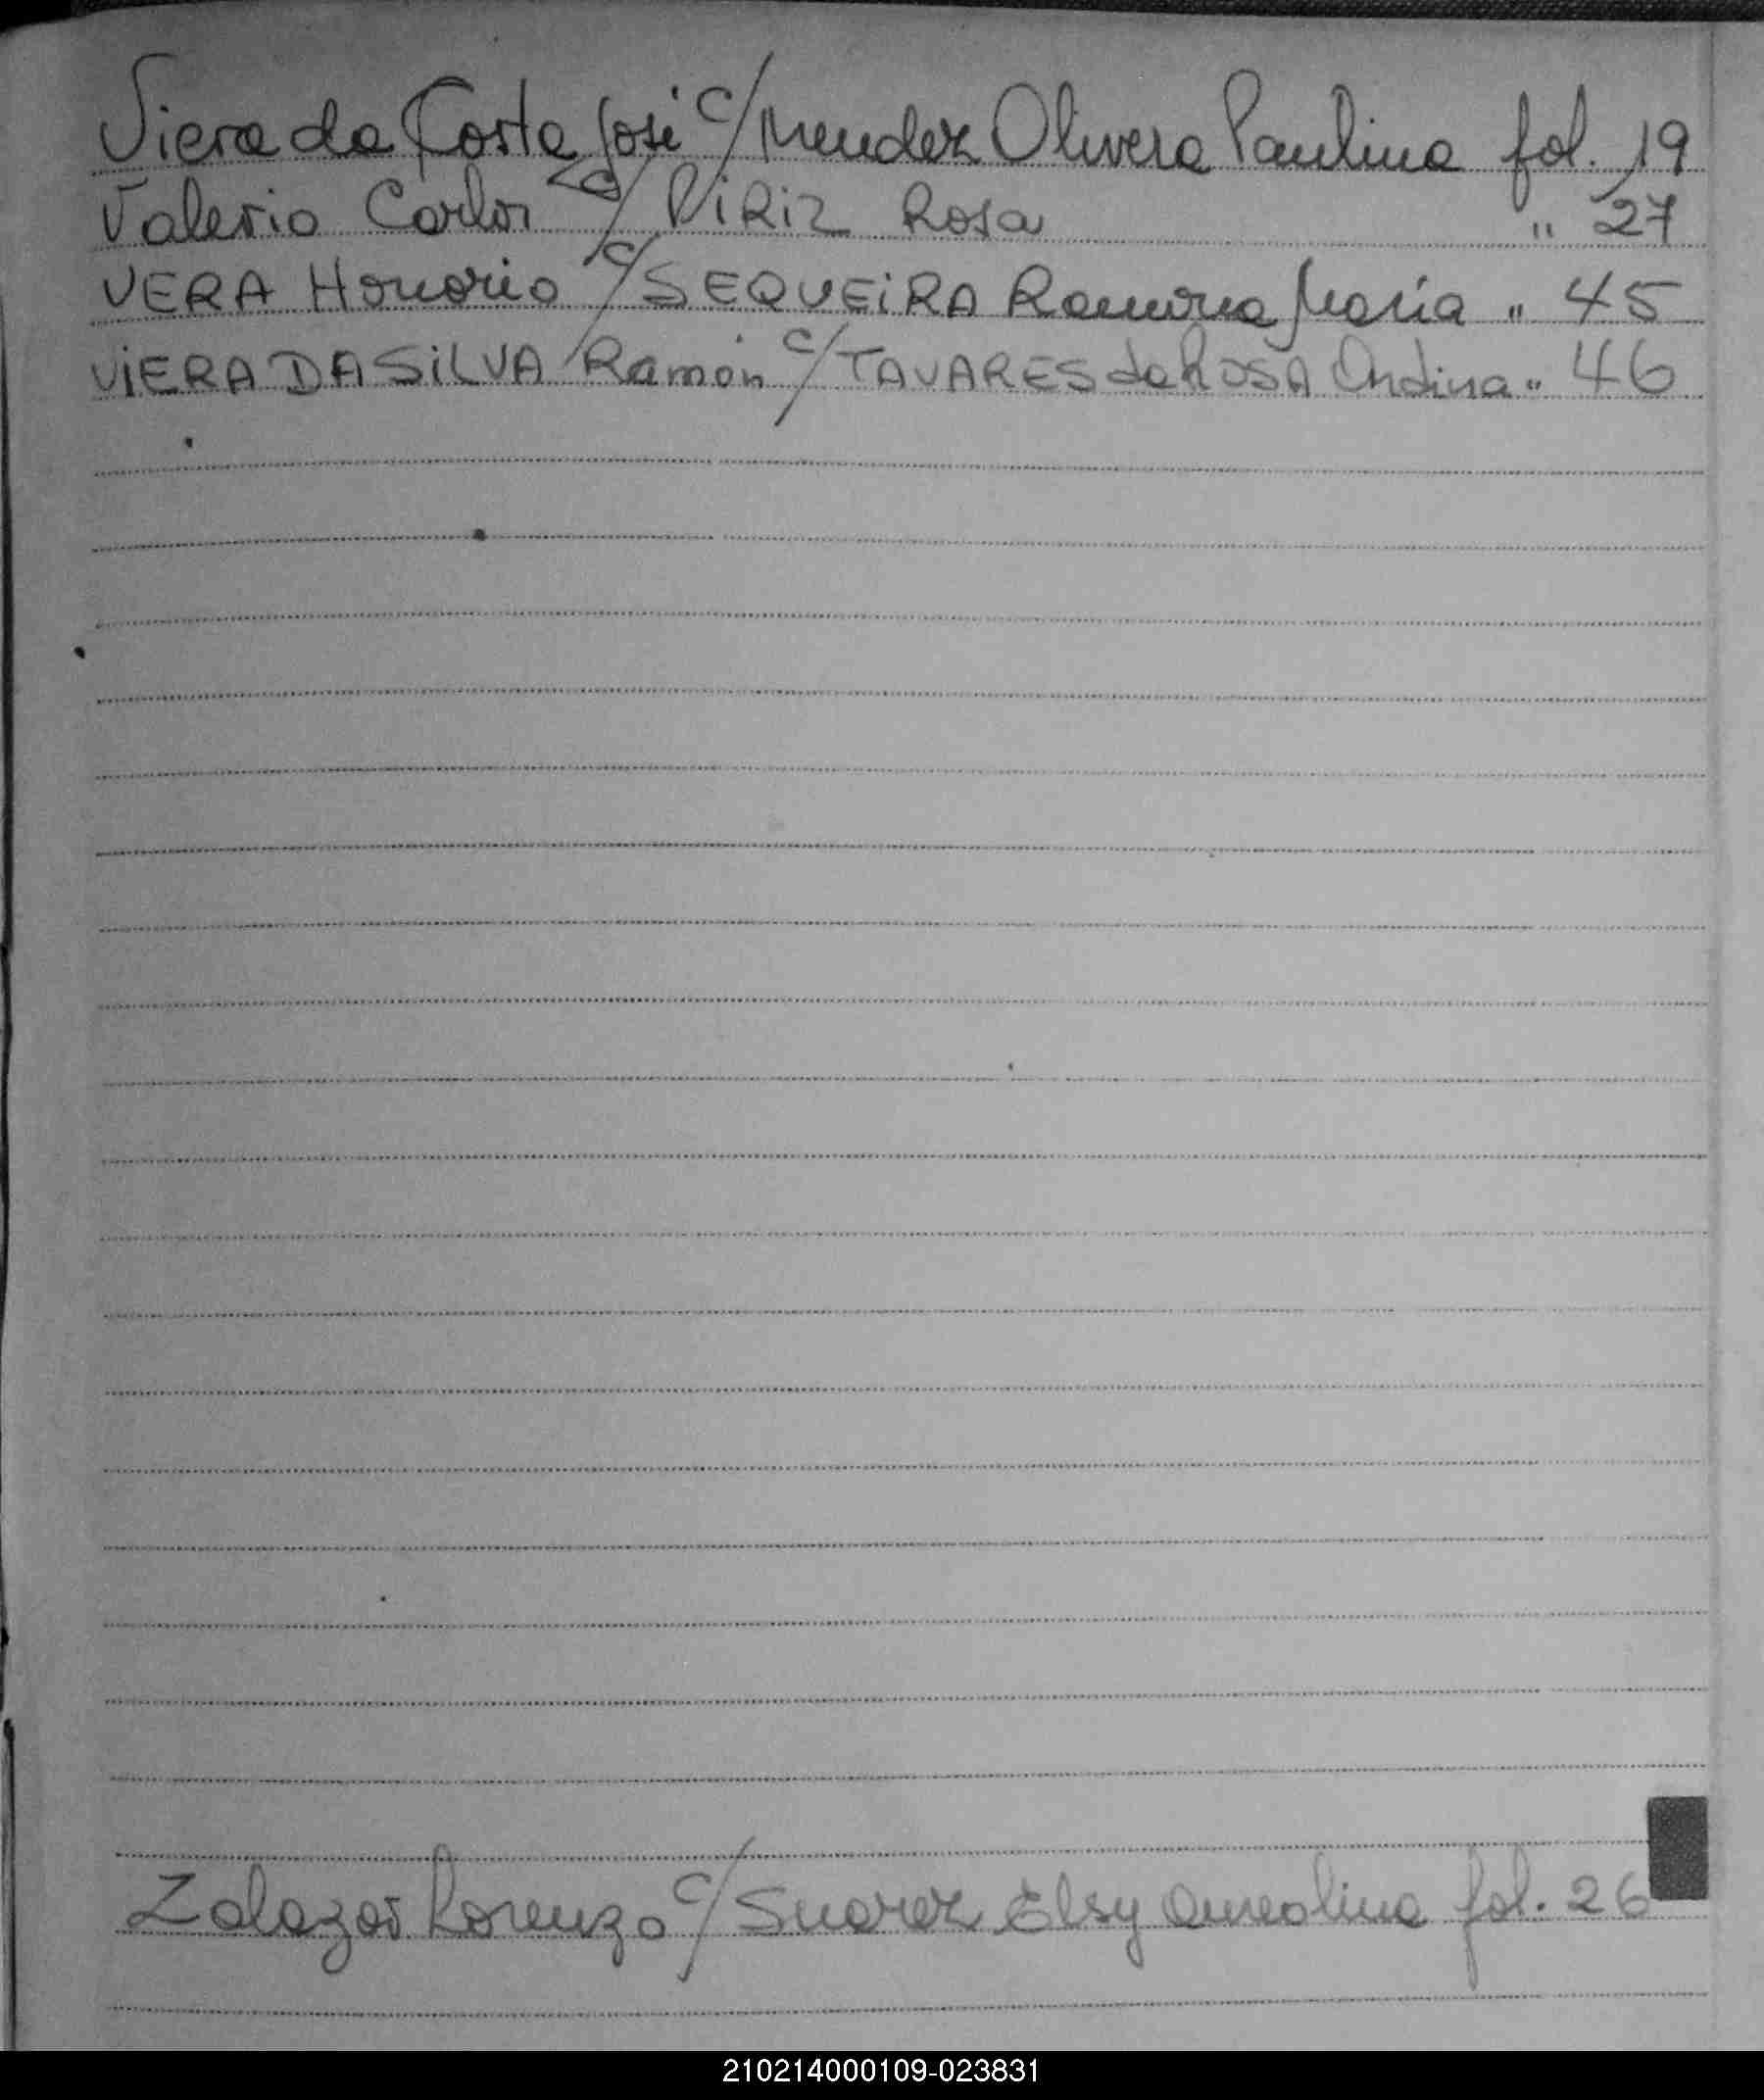 Viera da Costa José c/ Mendez Olivera Paulina fol. 19
Valerio Carlos c/ PiRiz Rosa " 27
VERA Honorio c/ SEQUEiRA Ramona María " 45
ViERA DA SiLVA Ramón c/ TAVARES da ROSA Ondina " 46
Zalazar Lorenzo c/ Suarez Elsy Aureolina fol. 26
210214000109-023831